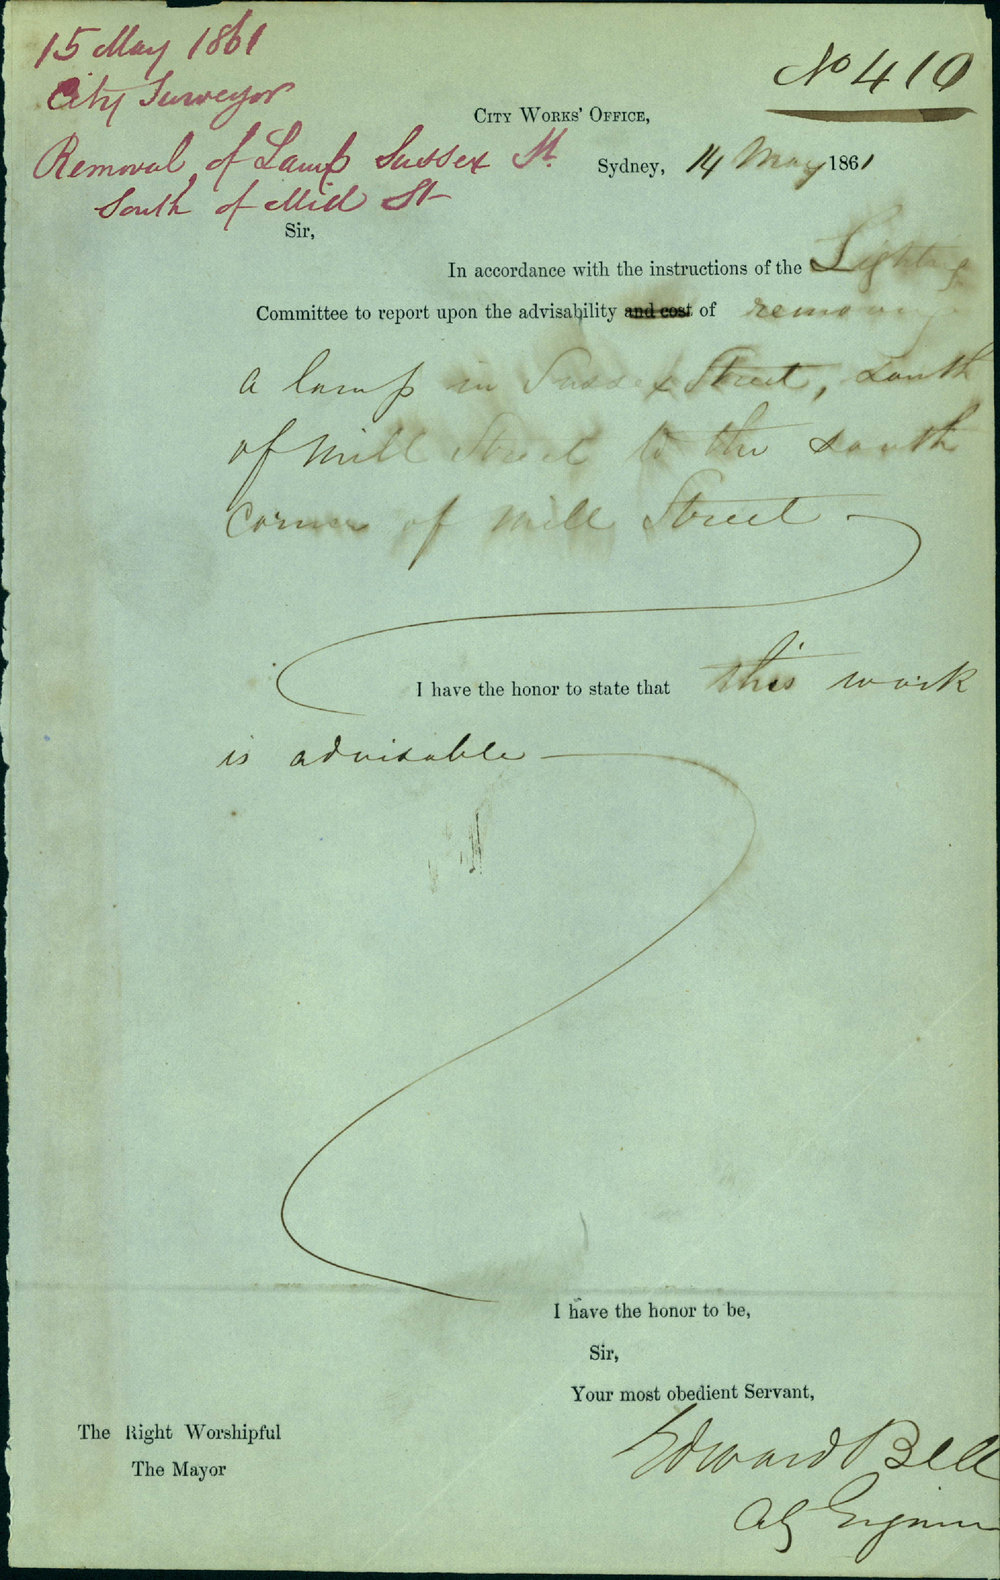 15 May 1861
City Surveyor
Removal of Lamp Sussex St.
South of Mill St
No 410
CITY WORKS' OFFICE,
Sydney, 14 May 1861
Sir,
In accordance with the instructions of the Lighting
Committee to report upon the advisability and cost of removing
a lamp in Sussex Street, south
of Mill Street to the south
corner of Mill Street
I have the honor to state that this work
is advisable
I have the honor to be,
Sir,
Your most obedient Servant,
Edward Bell
City Engineer
The Right Worshipful
The Mayor